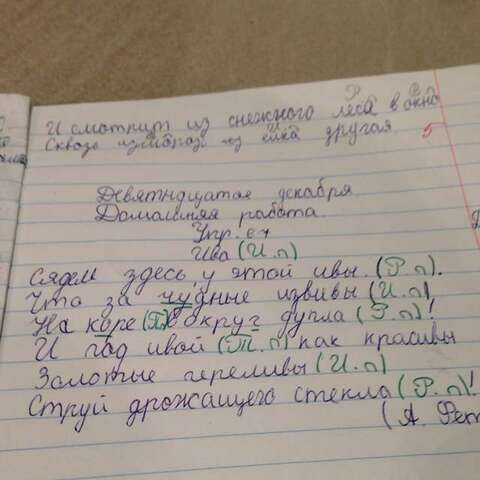 И смотрит из снежного леса в окно
Сквозь изморозь ёлка другая
5
Девятнадцатое декабря.
Домашняя работа.
Упр. 67
Ива (И.п)
Сядем здесь, у этой ивы. (Р.п).
Что за чудные извивы (И.п)
На коре (П) вокруг дупла (Р.п)!
И под ивой (Т.п) как красивы
Золотые переливы (И.п)
Струй дрожащего стекла (Р.п)!
(А. Фет